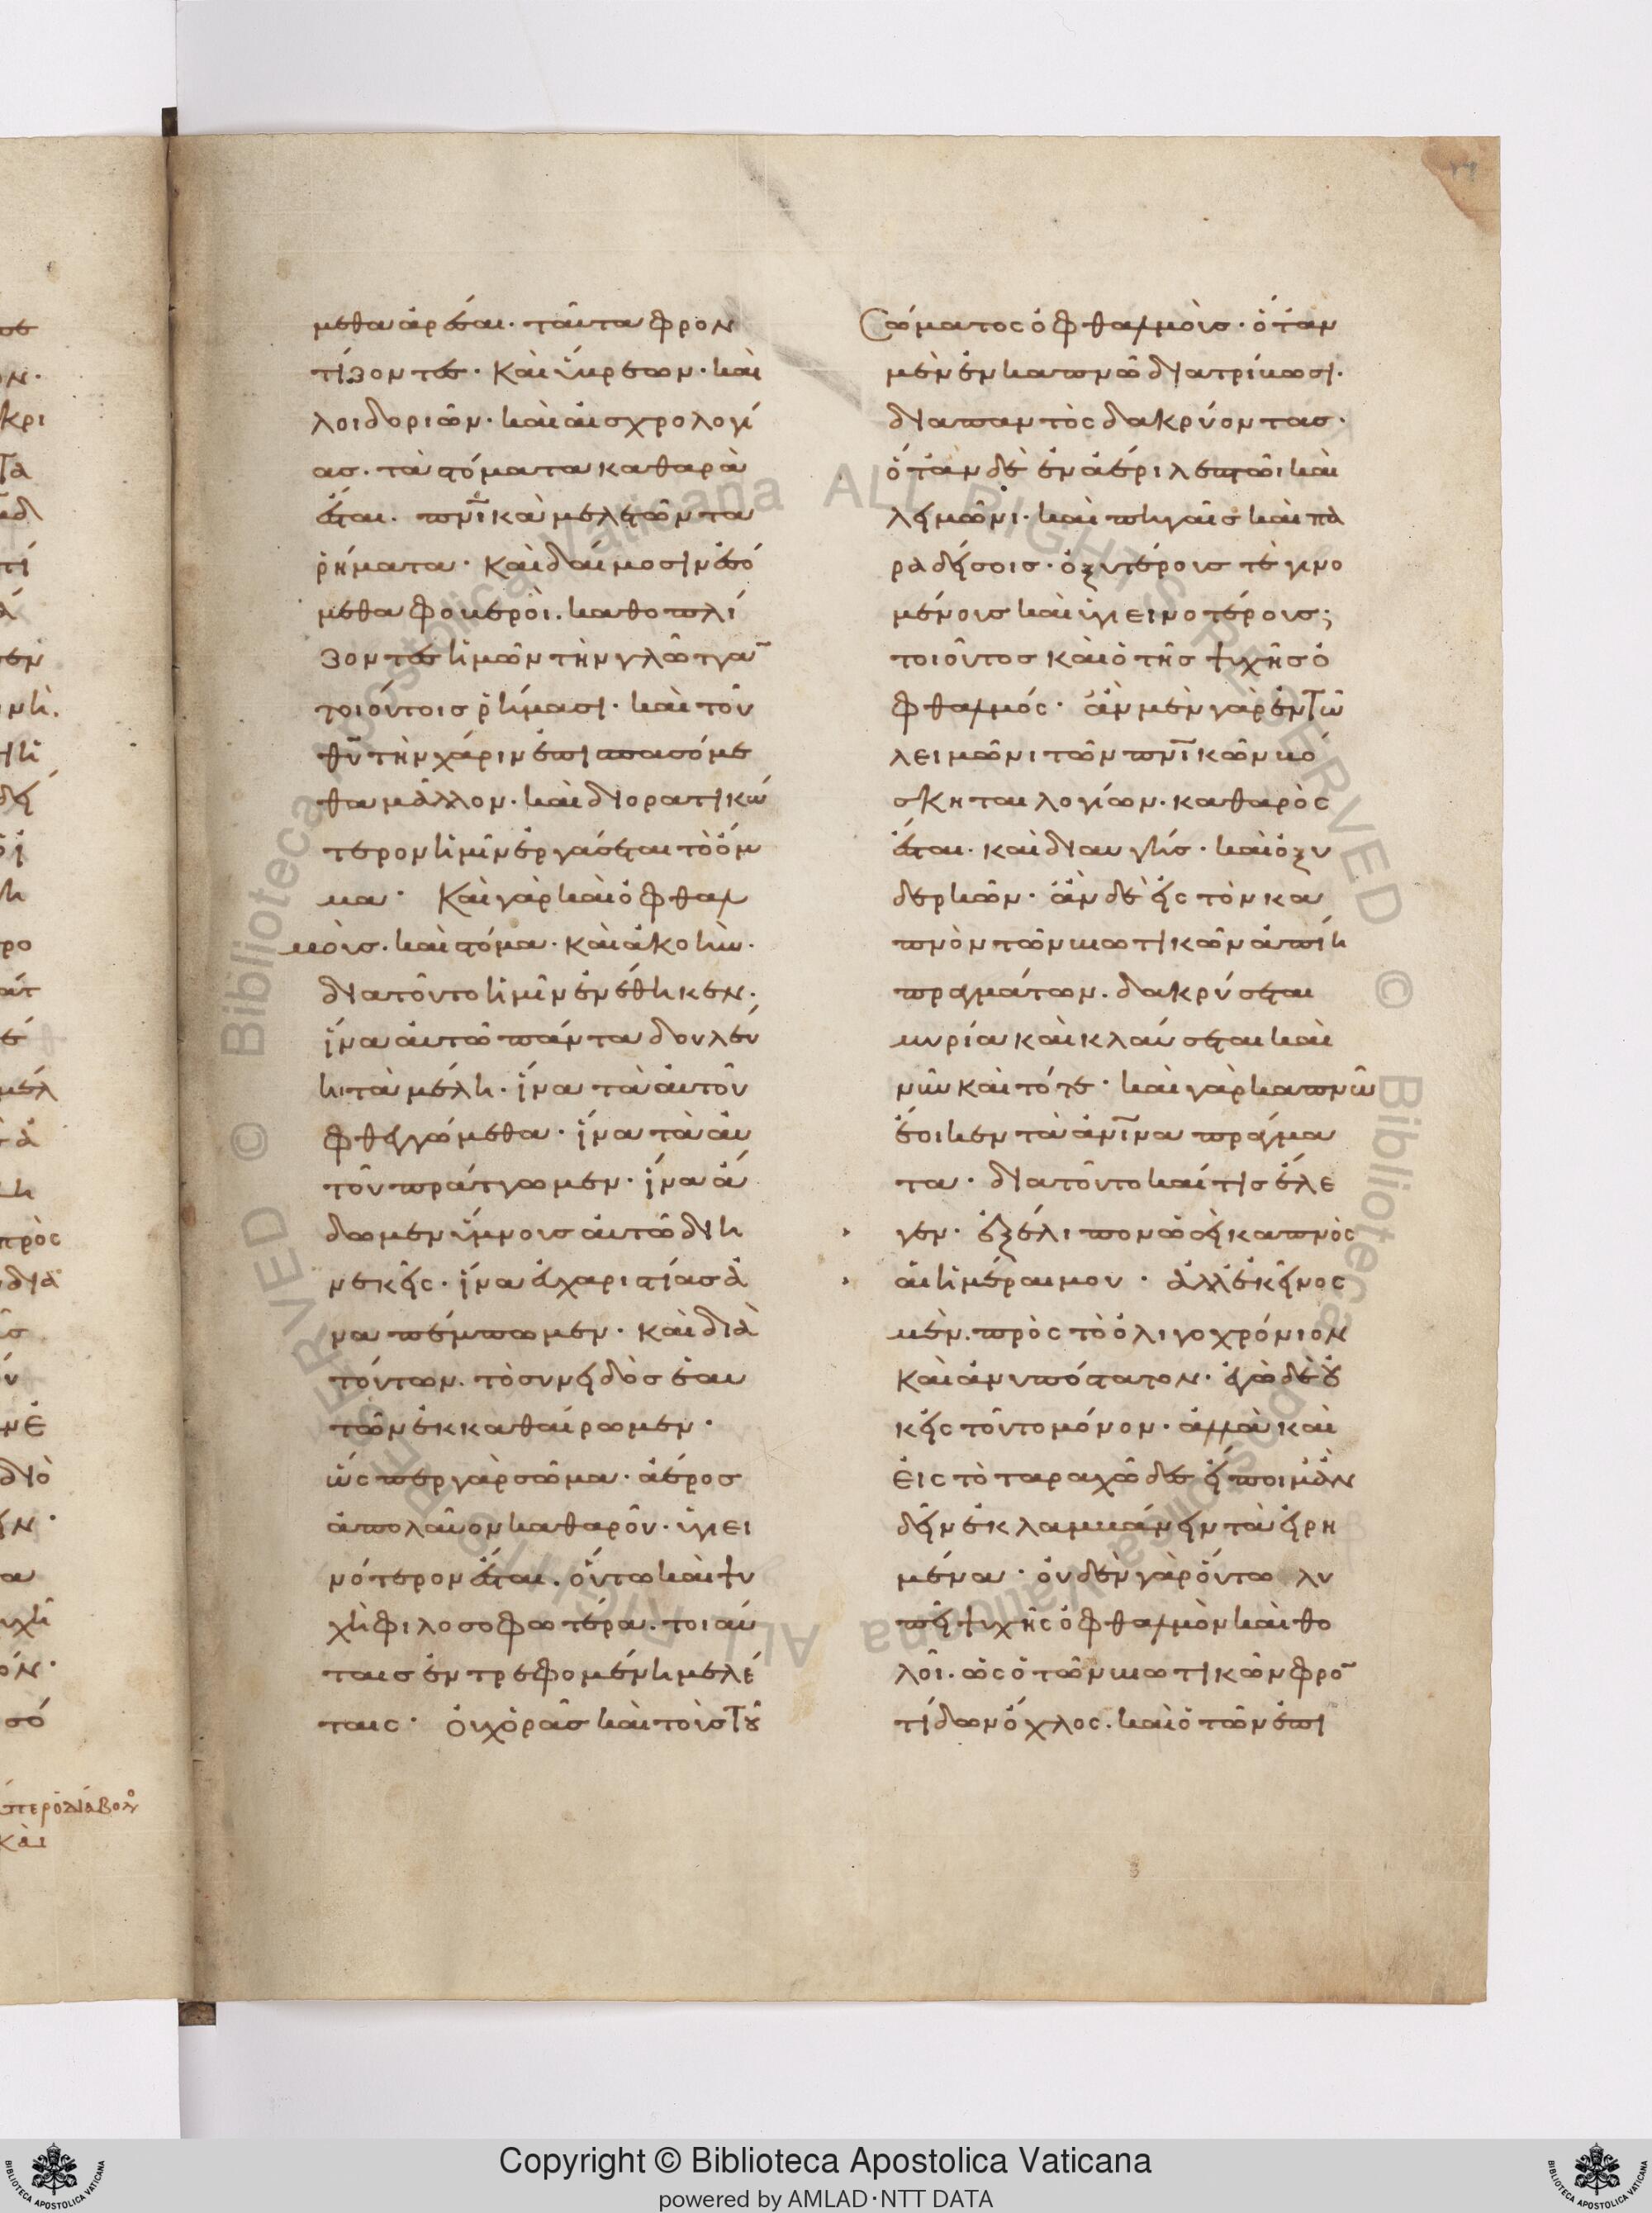 μεθα ἀρέσαι. ταῦτα φρον
τίζοντες. καὶ ὕβρεων. καὶ
λοιδοριῶν. καὶ αἰσχρολογί
ας. τὰ στόματα καθαρὰ
ἔσται. πνικὰ μελετῶντα
ῥήματα. καὶ δαίμοσιν ἐσό
μεθα φοβεροὶ. καθοπλί
ζοντες ἡμῶν τὴν γλῶτταν
τοιούτοις ῥήμασι. καὶ τοῦ
θυ τὴν χάριν ἐπισπασόμε
θα μᾶλλον. καὶ διορατικώ
τερον ἡμῖν ἐργάσεται τὸ ὄμ
μα. Καὶ γὰρ καὶ ὀφθαλ
μοὺς. καὶ στόμα. καὶ ἀκοὴν.
διατοῦτο ἡμῖν ἐνέθηκεν.
ἵνα αὐτῶ πάντα δουλεύ
η τὰ μέλη. ἵνα τὰ αὐτοῦ
φθεγγώμεθα. ἵνα τὰ αὐ
τοῦ πράττωμεν. ἵνα ἄ
δωμεν ὕμνους αὐτῶ διη
νεκεῖς. ἵνα εὐχαριστίας ἀ
ναπέμπωμεν. καὶ διὰ
τούτων. τὸ συνειδὸς ἑαυ
τῶν ἐκκαθαίρωμεν.
ὥσπερ γὰρ σῶμα. ἀέρος
ἀπολαῦον καθαροῦ. ὑγιει
νότερον ἔσται. οὕτω καὶ ψυ
χὴ φιλοσοφωτέρα. τοιαύ
ταις ἐντρεφομένη μελέ
ταις. Οὐχ ὁρᾶς καὶ τοὺς τοῦ
Σώματος ὀφθαλμοὺς. ὅταν
μὲν ἐν καπνῶ διατρίβωσι.
διαπαντὸς δακρύοντας.
ὅταν δὲ ἐν ἀέρι λεπτῶι καὶ
λειμῶνι. καὶ πηγαῖς καὶ πα
ραδείσοις. ὀξυτέρους τε γινο
μένους καὶ ὑγιεινοτέρους;
τοιοῦτος καὶ ὁ τῆς ψυχῆς ὀ
φθαλμός. ἂν μὲν γὰρ ἐν τῶ
λειμῶνι τῶν πνικῶν βό
σκηται λογίων. καθαρὸς
ἔσται. καὶ διαυγής. καὶ ὀξυ
δερκῶν. ἂν δὲ εἰς τὸν κα
πνὸν τῶν βιωτικῶν ἀπίη
πραγμάτων. δακρύσεται
μυρία καὶ κλαύσεται καὶ
νῦν καὶ τότε. καὶ γὰρ καπνῶ
ἔοικεν τὰ ἀνινα πράγμα
τα. διατοῦτο καί τις ἔλε
γεν. ἐξέλιπον ὡσεὶ καπνὸς
αἱ ἡμέραι μου. ἀλλ' ἐκεῖνος
μὲν. πρὸς τὸ ὀλιγοχρόνιον
καὶ ἀνυπόστατον. ἐγὼ δὲ οὐ
κ εἰς τοῦτο μόνον. ἀλλὰ καὶ
εἰς τὸ ταραχῶδες εἴποιμ' ἂν
δεῖν ἐκλαμβάνειν τὰ εἰρη
μένα. οὐδὲν γὰρ οὕτω λυ
πεῖ ψυχῆς ὀφθαλμὸν καὶ θο
λοῖ. ὡς ὁ τῶν βιωτικῶν φρον
τίδων ὄχλος. καὶ ὁ τῶν ἐπι
Copyright © Biblioteca Apostolica Vaticana
powered by AMLAD·NTT DATA